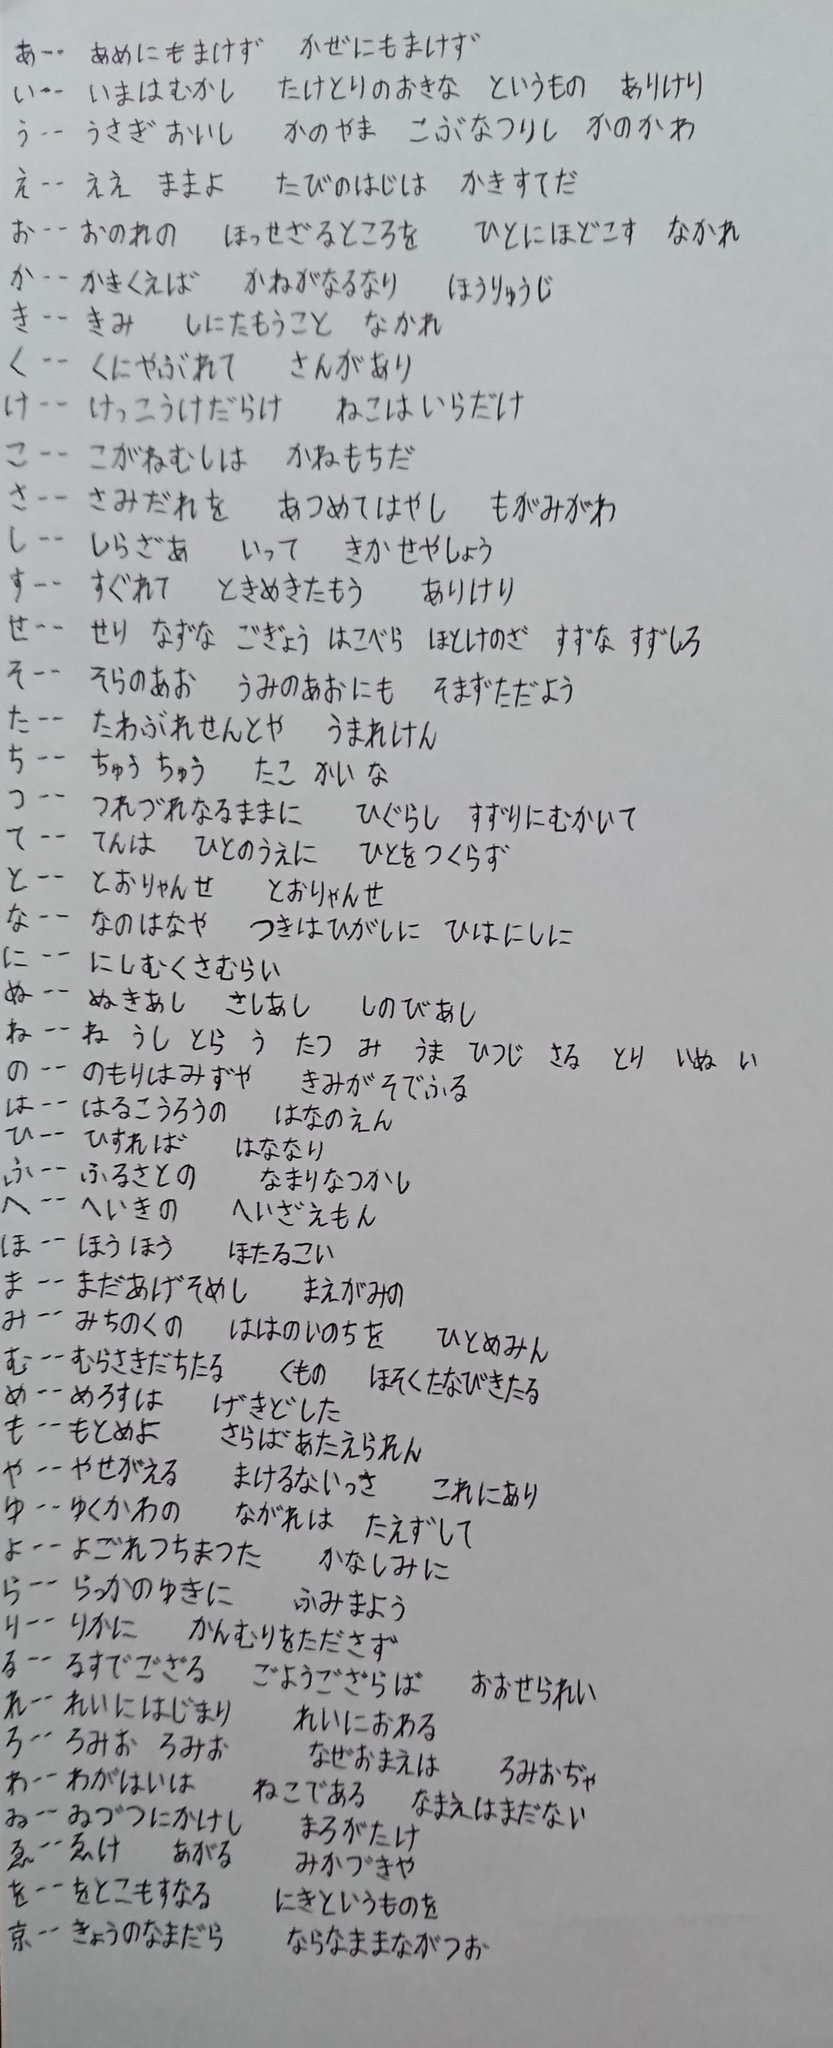 あ-- あめにもまけず かぜにもまけず
い-- いまはむかし たけとりのおきな というもの ありけり
う-- うさぎおいし かのやま こぶなつりし かのかわ
え-- ええ ままよ たびのはじは かきすてだ
お-- おのれの ほっせざるところを ひとにほどこす なかれ
か-- かきくえば かねがなるなり ほうりゅうじ
き-- きみ しにたもうこと なかれ
く-- くにやぶれて さんがあり
け-- けっこうけだらけ ねこはいらだけ
こ-- こがねむしは かねもちだ
さ-- さみだれを あつめてはやし もがみがわ
し-- しらざあ いって きかせやしょう
す-- すぐれて ときめきたもう ありけり
せ-- せり なずな ごぎょう はこべら ほとけのざ すずな すずしろ
そ-- そらのあお うみのあおにも そまずただよう
た-- たわぶれせんとや うまれけん
ち-- ちゅうちゅう たこ かい な
つ-- つれづれなるままに ひぐらし すずりにむかいて
て-- てんは ひとのうえに ひとをつくらず
と-- とおりゃんせ とおりゃんせ
な-- なのはなや つきはひがしに ひはにしに
に-- にしむくさむらい
ぬ-- ぬきあし さしあし しのびあし
ね-- ね うし とら う たつ み うま ひつじ さる とり いぬ い
の-- のもりはみずや きみがそでふる
は-- はるこうろうの はなのえん
ひ-- ひすれば はななり
ふ-- ふるさとの なまりなつかし
へ-- へいきの へいざえもん
ほ-- ほうほう ほたるこい
ま-- まだあげそめし まえがみの
み-- みちのくの ははのいのちを ひとめみん
む-- むらさきだちたる くもの ほそくたなびきたる
め-- めろすは げきどした
も-- もとめよ さらばあたえられん
や-- やせがえる まけるないっさ これにあり
ゆ-- ゆくかわの ながれは たえずして
よ-- よごれつちまつた かなしみに
ら-- らっかのゆきに ふみまよう
り-- りかに かんむりをたださず
る-- るすでござる ごようござらば おおせられい
れ-- れいにはじまり れいにおわる
ろ-- ろみお ろみお なぜおまえは ろみおぢゃ
わ-- わがはいは ねこである なまえはまだない
ゐ-- ゐづつにかけし まろがたけ
ゑ-- ゑけ あがる みかづきや
を-- をとこもすなる にきというものを
京-- きょうのなまだら ならなままながつお